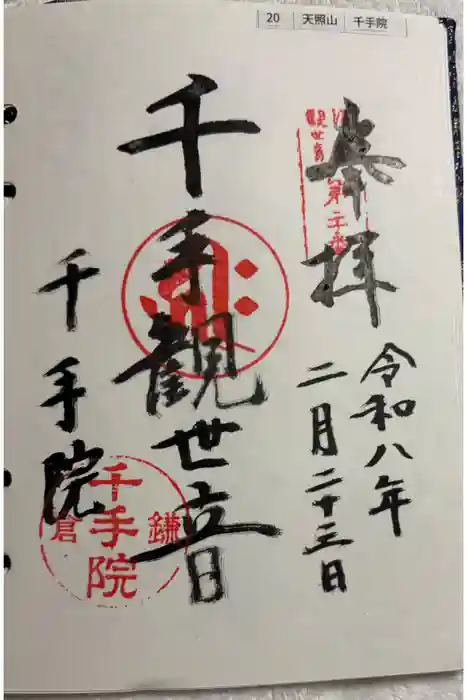 20 天照山 千手院
奉拝
令和八年
二月二十三日
千手観世音
千手院
観世音
第二十番
鎌倉
千手院